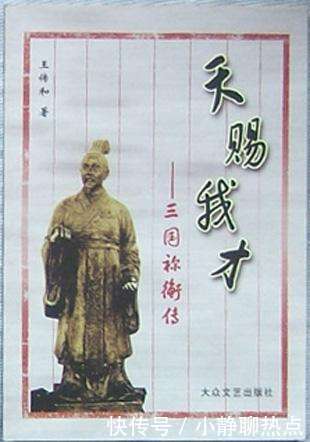 天赐我才
——三国祢衡传
王伟和 著
大众文艺出版社
快传号 / 小静聊热点